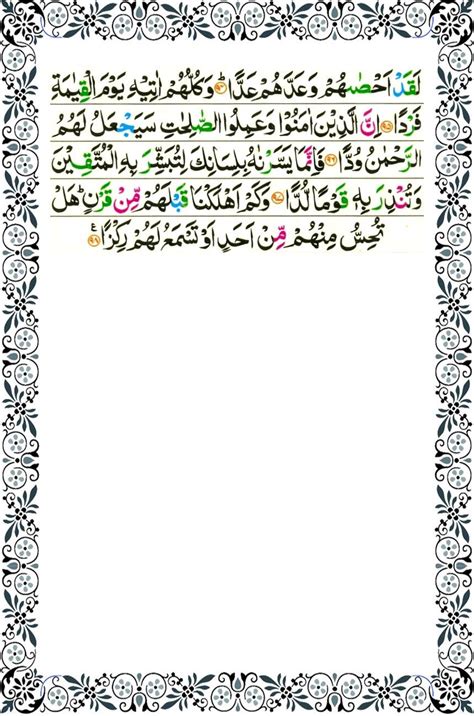 لَقَدْ اَحْصٰىهُمْ وَعَدَّهُمْ عَدًّا ؕ﴿۹۴﴾ وَكُلُّهُمْ اٰتِيْهِ يَوْمَ الْقِيٰمَةِ
فَرْدًا ﴿۹۵﴾ اِنَّ الَّذِيْنَ اٰمَنُوْا وَعَمِلُوا الصّٰلِحٰتِ سَيَجْعَلُ لَهُمُ
الرَّحْمٰنُ وُدًّا ﴿۹۶﴾ فَاِنَّمَا يَسَّرْنٰهُ بِلِسَانِكَ لِتُبَشِّرَ بِهِ الْمُتَّقِيْنَ
وَتُنْذِرَ بِهٖ قَوْمًا لُّدًّا ﴿۹۷﴾ وَكَمْ اَهْلَكْنَا قَبْلَهُمْ مِّنْ قَرْنٍ ؕ هَلْ
تُحِسُّ مِنْهُمْ مِّنْ اَحَدٍ اَوْ تَسْمَعُ لَهُمْ رِكْزًا ﴿۹۸﴾ ع